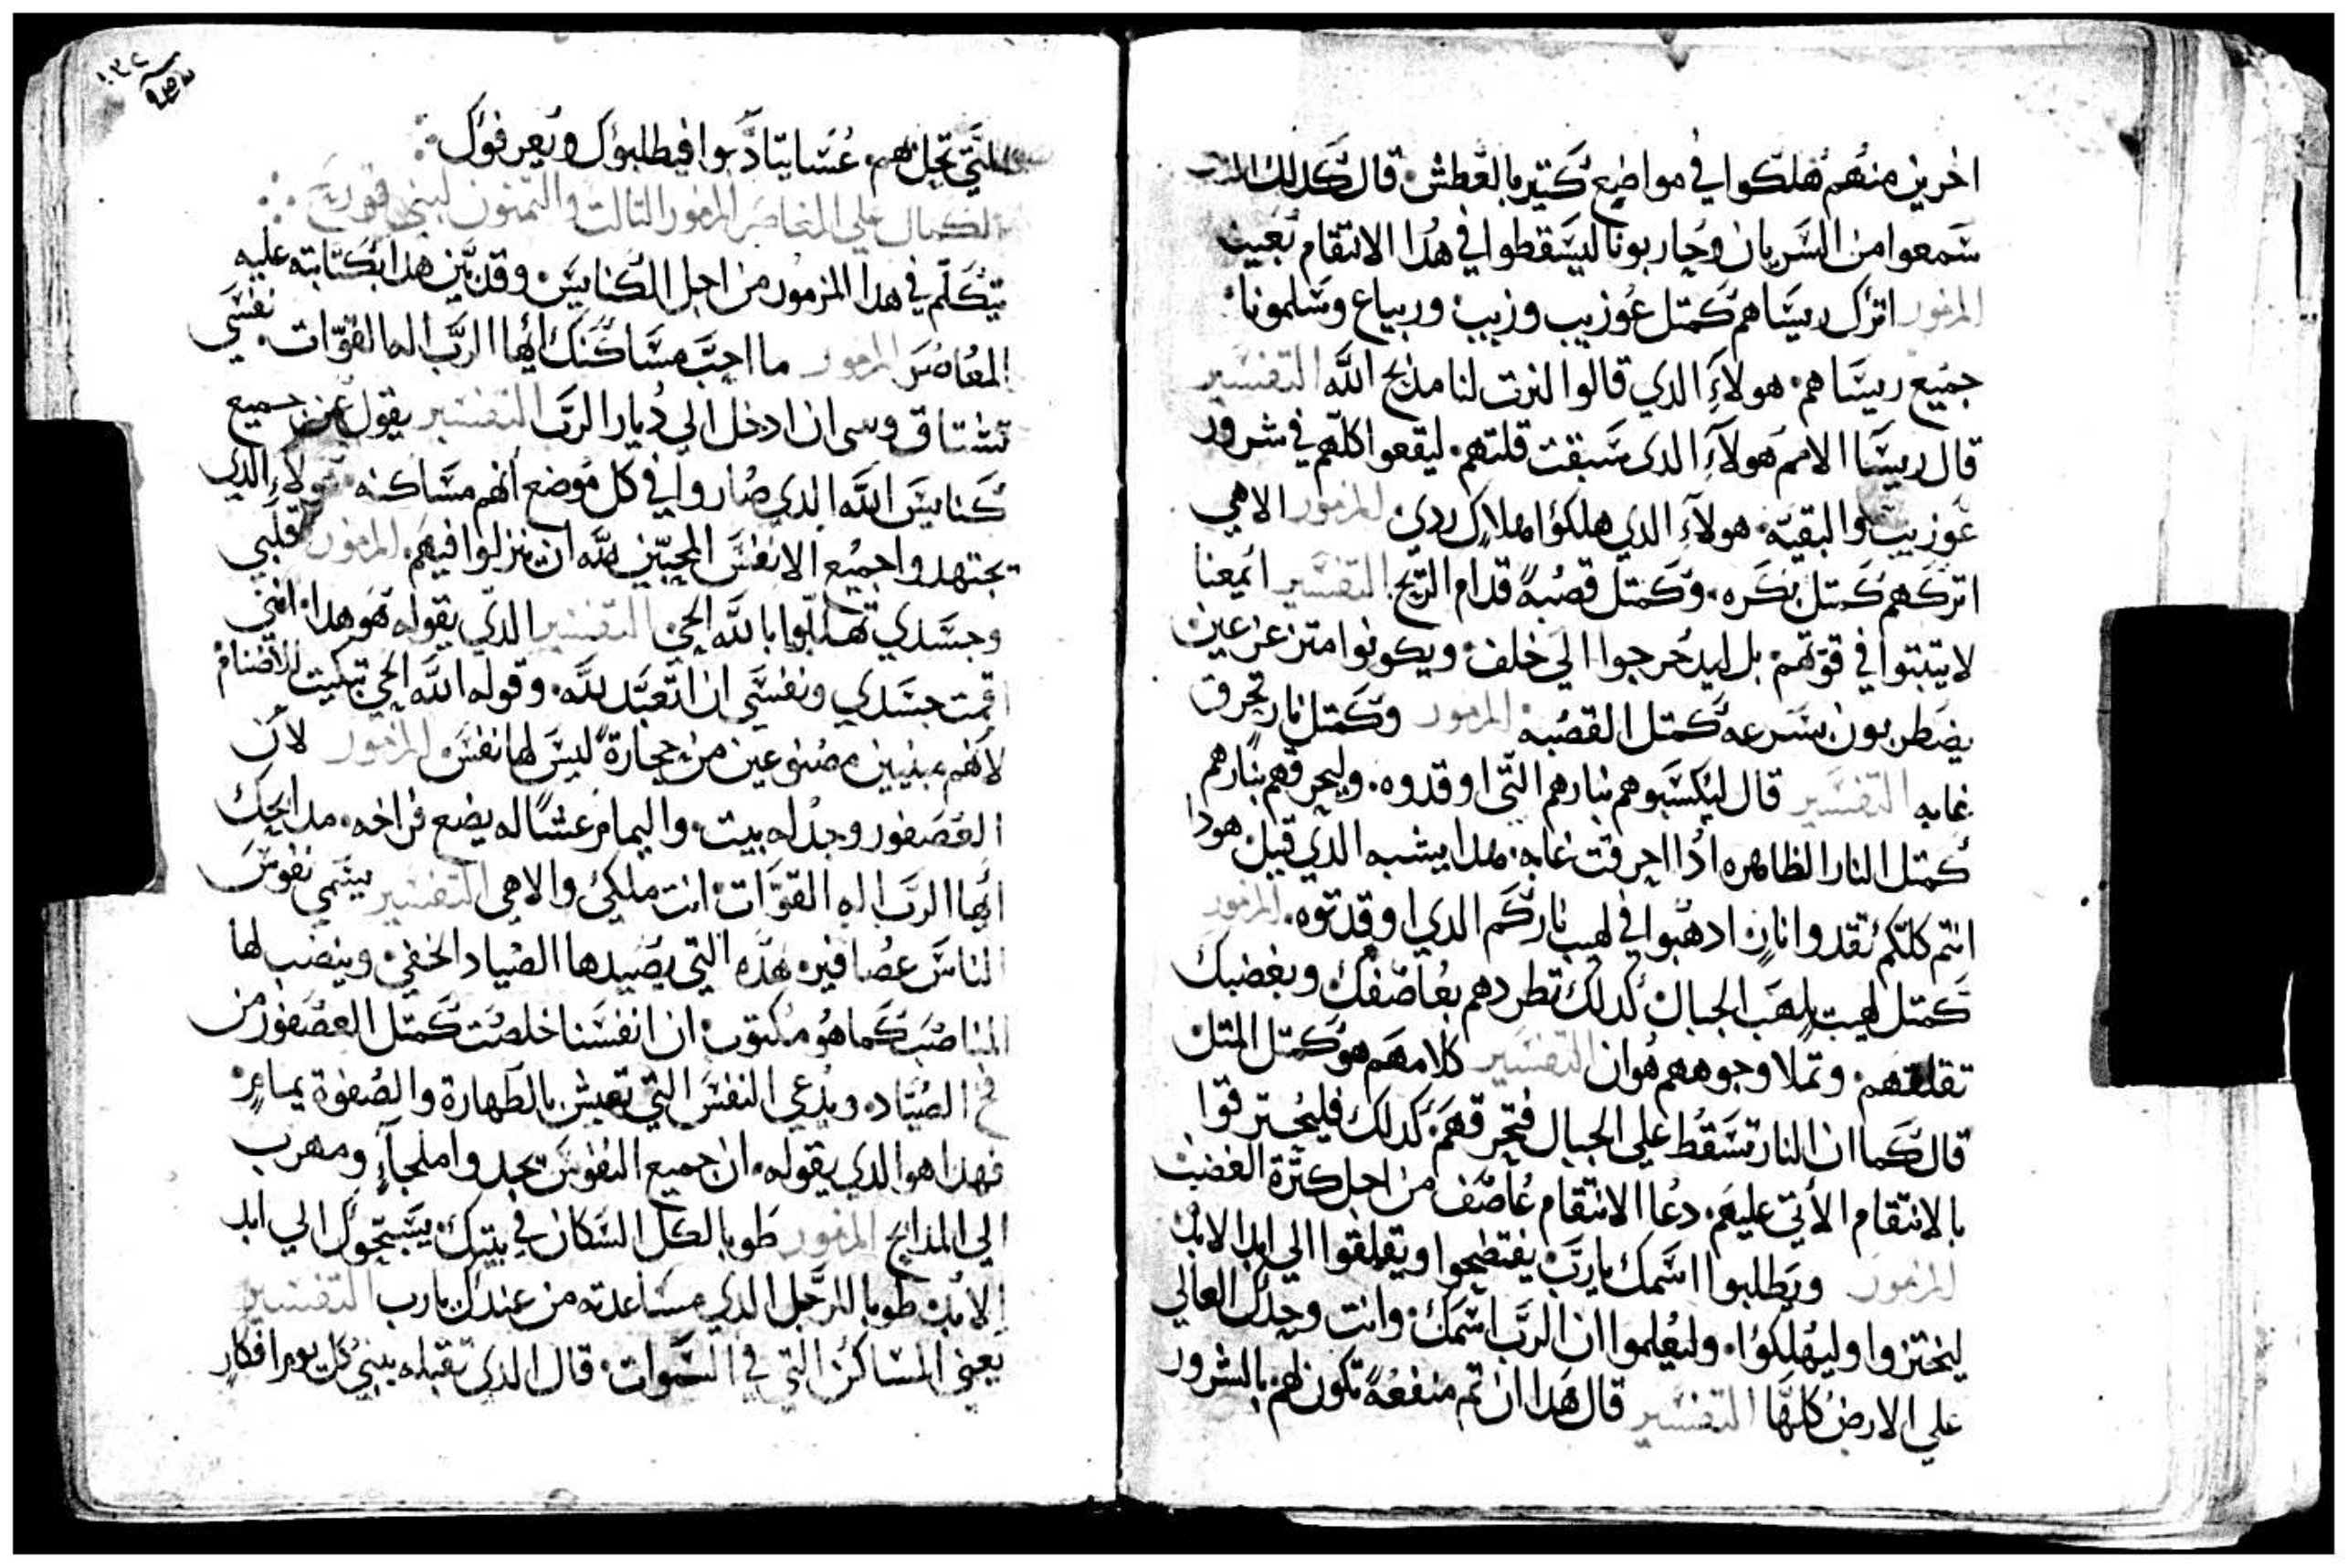 اخرين منهم هلكوا في مواضع كتير بالعطش. قال كدلك الدين
سمعوا من السريان وحاربونا ليسقطوا في هدا الانتقام بعينه
المزمور اترك ريساهم كمتل عوزيب وزيب وربياع وسلمونا
جميع ريساهم. هولاء الدي قالوا لنرت لنا مدبح الله التفسير
قال ريسا الامم هولاء الدى سبقت قلتهم. ليقعوا كلهم في شرور
عوزيب والبقيه. هولاء الدي هلكوا هلاك ردى المزمور الاهي
اتركهم كمتل بكره. وكمتل قصبة قدام الريح التفسير ايمعنا
لا يتبتوا في قوتهم. بل ليدحرجوا الي خلف. ويكونوا متزعزعين
يضطربون بسرعه كمتل القصبه المزمور وكمتل نار تحرق
غابه التفسير قال ليكسبوهم بنارهم التي اوقدوه. وليحرقهم بنارهم
كمتل النار الظاهره ادا احرقت غابه. هدا يشبه الدي قيل هودا
انتم كلكم تقدوا نار ادهبوا في لهيب ناركم الدي اوقدتوه. المزمور
كمتل لهيب يلهب الجبال كدلك تطردهم بعاصفك وبغضبك
تقلقهم. وتملا وجوههم هوان التفسير كلامهم هو كمتل المتل
قال كما ان النار تسقط علي الجبال فتحرقهم. كدلك فليحترقوا
بالانتقام الاتي عليهم. دعا الانتقام عاصف من اجل كترة الغضب
المزمور ويطلبوا اسمك يا رب يفتضحوا ويقلقوا الي ابد الابد
ليختزوا وليهلكوا. وليعلموا ان الرب اسمك. وانت وحدك العالي
علي الارض كلها التفسير قال هدا ان تم منفعة تكون لهم بالشرور
التي تحل بهم. عسا يتادبوا فيطلبوك ويعرفوك
الكمال علي المعاصر المزمور التالت والتمنون لبني قورح
يتكلم في هدا المزمور من اجل الكنايس. وقد بين هدا بكتابته عليه
المعاصر المزمور ما احب مساكنك ايها الرب اله القوات. نفسي
تشتاق وسى ان ادخل الي ديار الرب التفسير يقول عن جميع
كنايس الله الدي صاروا في كل موضع انهم مساكنه. هولاء الدي
يجتهدوا جميع الانفس المحبين لله ان ينزلوا فيهم. المزمور قلبي
وجسدي تهللوا بالله الحي التفسير الدي يقوله هو هدا. انني
اقمت جسدي ونفسي ان اتعبد لله. وقوله الله الحي تبكيت للاصنام
لانهم مبنيين مصنوعين من حجارة ليس لها نفس المزمور لان
العصفور وجد له بيت. واليمام عشا له يضع فراخه. مدابحك
ايها الرب اله القوات. انت ملكي والاهي التفسير يسمي نفوس
الناس عصافير. هده التي يصيدها الصياد الخفي. وينصب لها
المناصب كما هو مكتوب. ان انفسنا خلصت كمتل العصفور من
فخ الصياد. ويدعي النفس التي تعيش بالطهارة والصفوة يمام.
فهدا هو الدي يقوله. ان جميع النفوس يجدوا ملجاء ومهرب
الي المدابح المزمور طوبا لكل السكان في بيتك يسبحوك الي ابد
الابد. طوبا للرجل الدي مساعدته من عندك يارب التفسير
يعني المساكن التي في السموات. قال الدي تقبله يبني كل يوم افكار